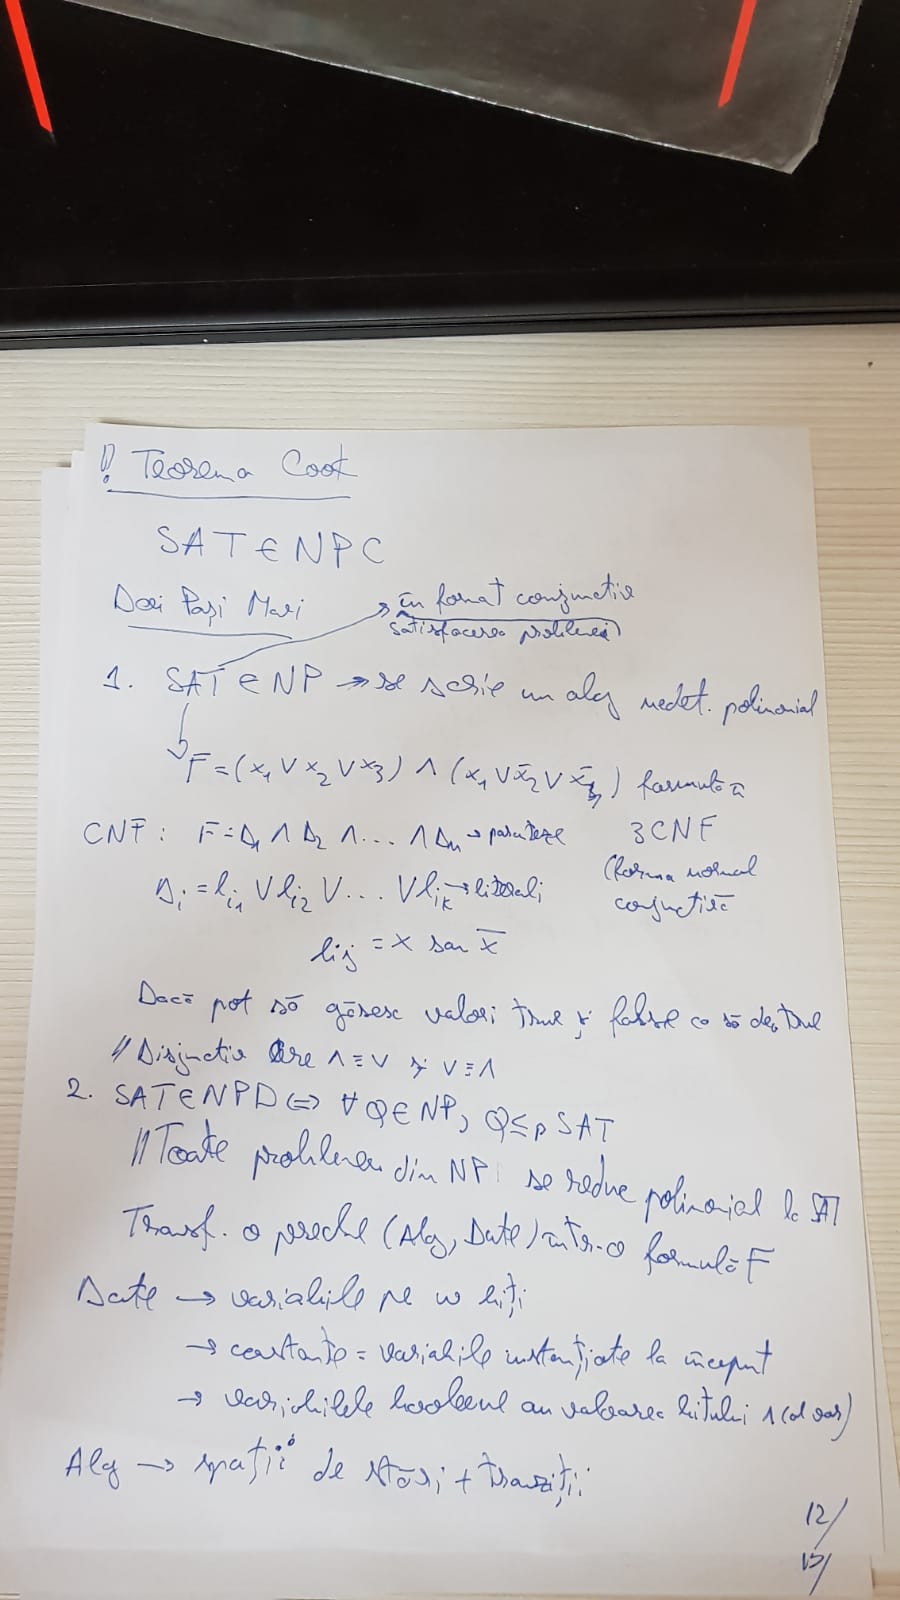 ! Teorema Cook
SAT ∈ NPC
Doi Pași Mari
în format conjunctiv
(satisfacerea problemei)
1. SAT ∈ NP → se scrie un alg nedet. polinomial
F = (x₁ ∨ x₂ ∨ x₃) ∧ (x₁ ∨ x̄₂ ∨ x̄₃) formulă
3CNF
(forma normal
conjunctivă
CNF: F = Δ₁ ∧ Δ₂ ∧ ... ∧ Δₙ → paranteze
Δᵢ = lᵢ₁ ∨ lᵢ₂ ∨ ... ∨ lᵢₖ → literali
lᵢⱼ = x sau x̄
Dacă pot să găsesc valori true și false ca să dea true
// Disjunctiv are ∧ ≡ ∨ și ∨ ≡ ∧
2. SAT ∈ NPD ⇔ ∀ Q ∈ NP, Q ≤p SAT
// Toate problemele din NP se reduc polinomial la SAT
Transf. o pereche (Alg, Date) într-o formulă F
Date → variabile pe w biți
→ constante = variabile instanțiate la început
→ variabilele booleene au valoarea bitului 1 (al var)
Alg → spații de stări + tranziții
12/